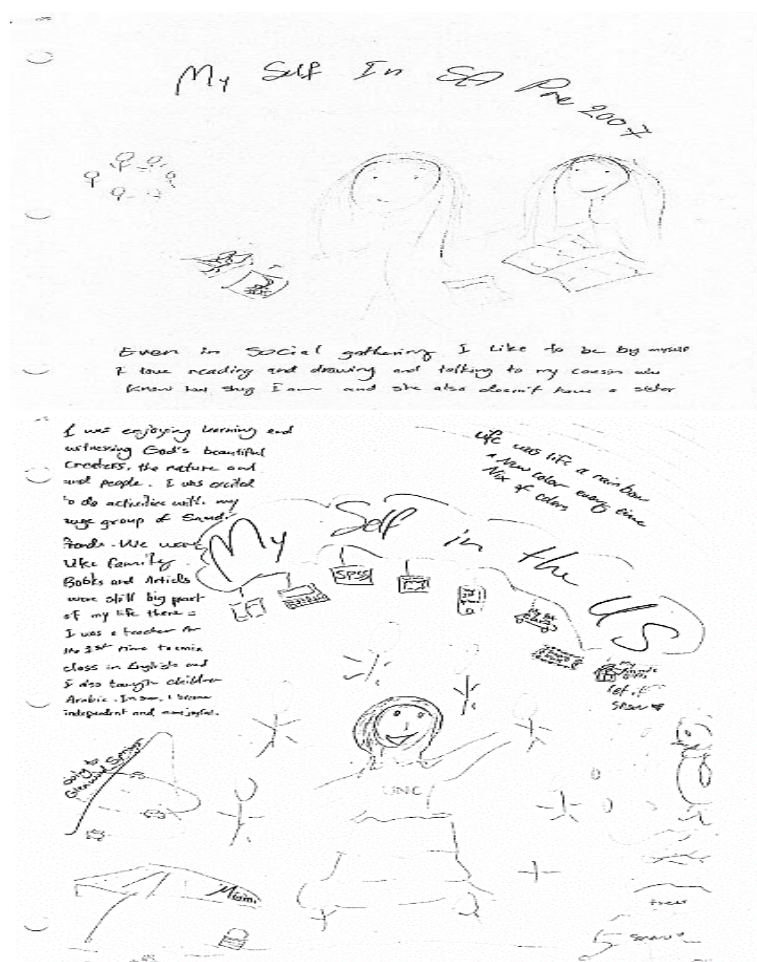 My Self In SA Pre 2007
Even in social gathering I like to be by myself
I love reading and drawing and talking to my couson who
know how shy I am and she also doesn't have a sister
I was enjoying learning and
witnessing God's beautiful
the nature and
and people. I was excited
to do activities with my
group of Saudi
We were
like family.
Books and Articls
were still big part
of my life there
I was a teacher for
the 1st time to
class in English and
I also taugh children
Arabic. I
independent and
Life was life a rainbow
a New color every time
Mix of colors
My Self in the US
SPSS
my
UNC
going to
Glenwood Springs
Miami
trees